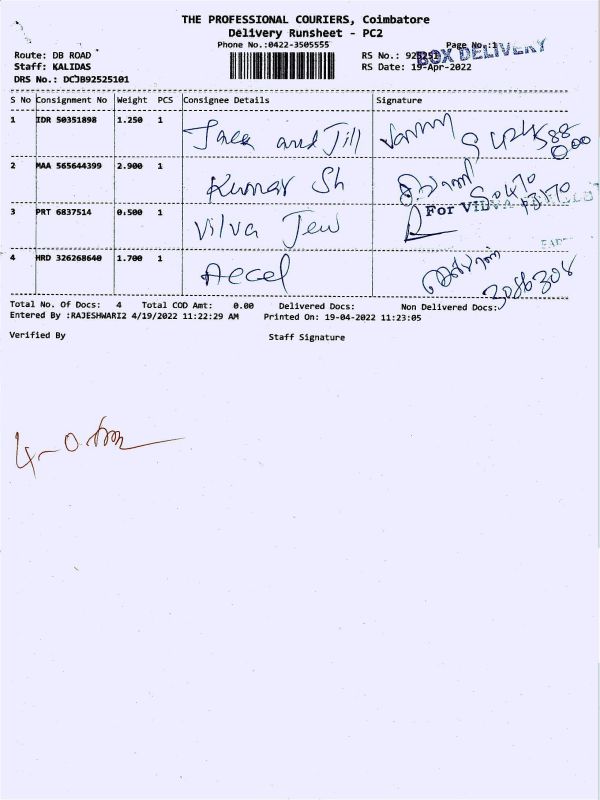 THE PROFESSIONAL COURIERS, Coimbatore
Delivery Runsheet - PC2
Phone No.:0422-3505555
Page No.:1
BOX DELIVERY
Route: DB ROAD
RS No.: 925251
Staff: KALIDAS
RS Date: 19-Apr-2022
DRS No.: DCJB92525101
S No Consignment No Weight PCS Consignee Details Signature
1 IDR 50351898 1.250 1 Jack and Jill
2 MAA 565644399 2.900 1 Kumar Sh
3 PRT 6837514 0.500 1 Vilva Jew For
4 HRD 326268640 1.700 1 Accel
Total No. Of Docs: 4 Total COD Amt: 0.00 Delivered Docs: Non Delivered Docs:
Entered By :RAJESHWARI2 4/19/2022 11:22:29 AM Printed On: 19-04-2022 11:23:05
Verified By Staff Signature